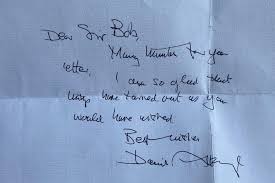 Dear Sir Bob,
Many thanks for your
letter, I am so glad that
things have turned out as you
would have wished
Best wishes
David